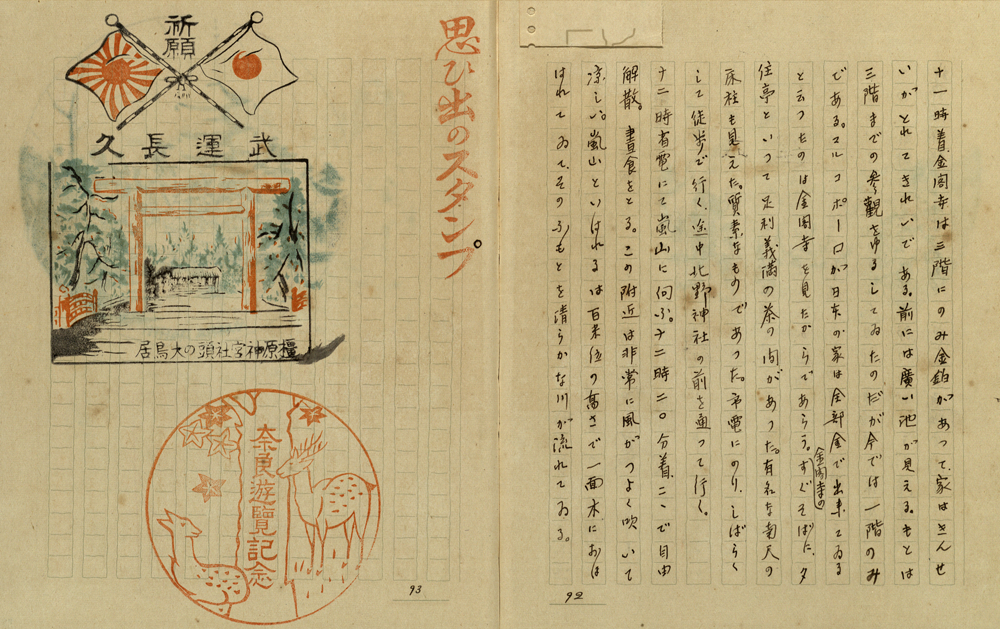 十一時着、金閣寺は三階にのみ金鉑があつて、家はさんせ
いがとれてきれいである。前には廣い池が見える。もとは
三階までの参觀をゆるしてゐたのだが今では一階のみ
である。マルコポーロが日本の家は全部金で出来てゐる
と云つたのは金閣寺を見たからであらう。すぐそばに、夕
金閣寺の
佳亭といつて足利義満の茶の間があつた。有名な南天の
床柱も見えた。質素なものであつた。市電にのり、しばらく
して徒歩で行く、途中北野神社の前を通つて行く。
十二時省電にて嵐山に向ふ。十二時二〇分着、ここで自由
解散。晝食をとる。この附近は非常に風がつよく吹いて
凉しい。嵐山といはれるは百米位の高さで一面木におほ
はれてゐて、そのふもとを清らかな川が流れてゐる。
92
思ひ出のスタンプ。
祈願
武運長久
橿原神宮社頭の大鳥居
奈良遊覽記念
93